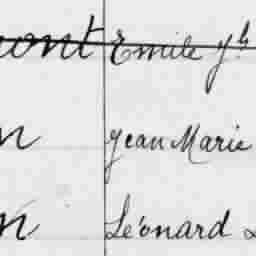 ont Emile Jh
n Jean Marie
n Léonard